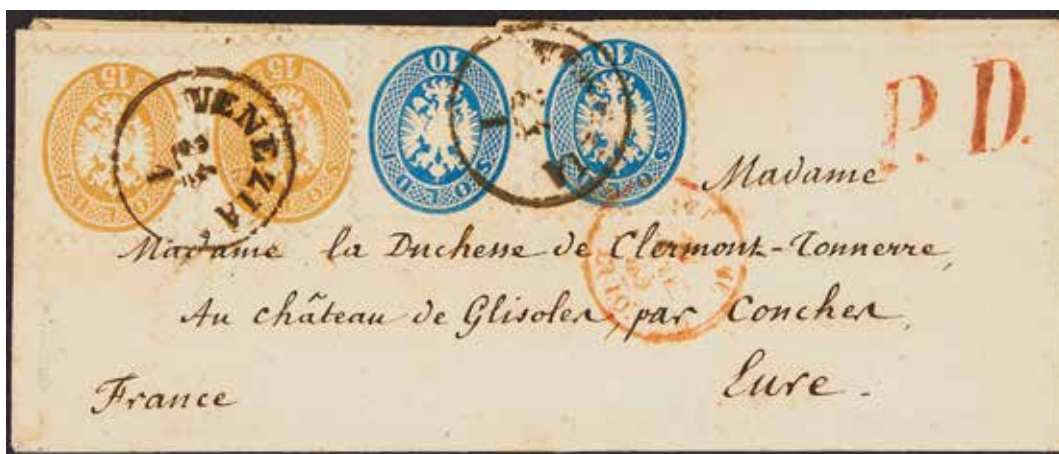 15 15 10 10
SOLDI SOLDI SOLDI SOLDI
VENEZIA
P.D.
Madame
Madame la Duchesse de Clermont-Tonnerre,
Au château de Glisoles, par Conches,
Eure.
France